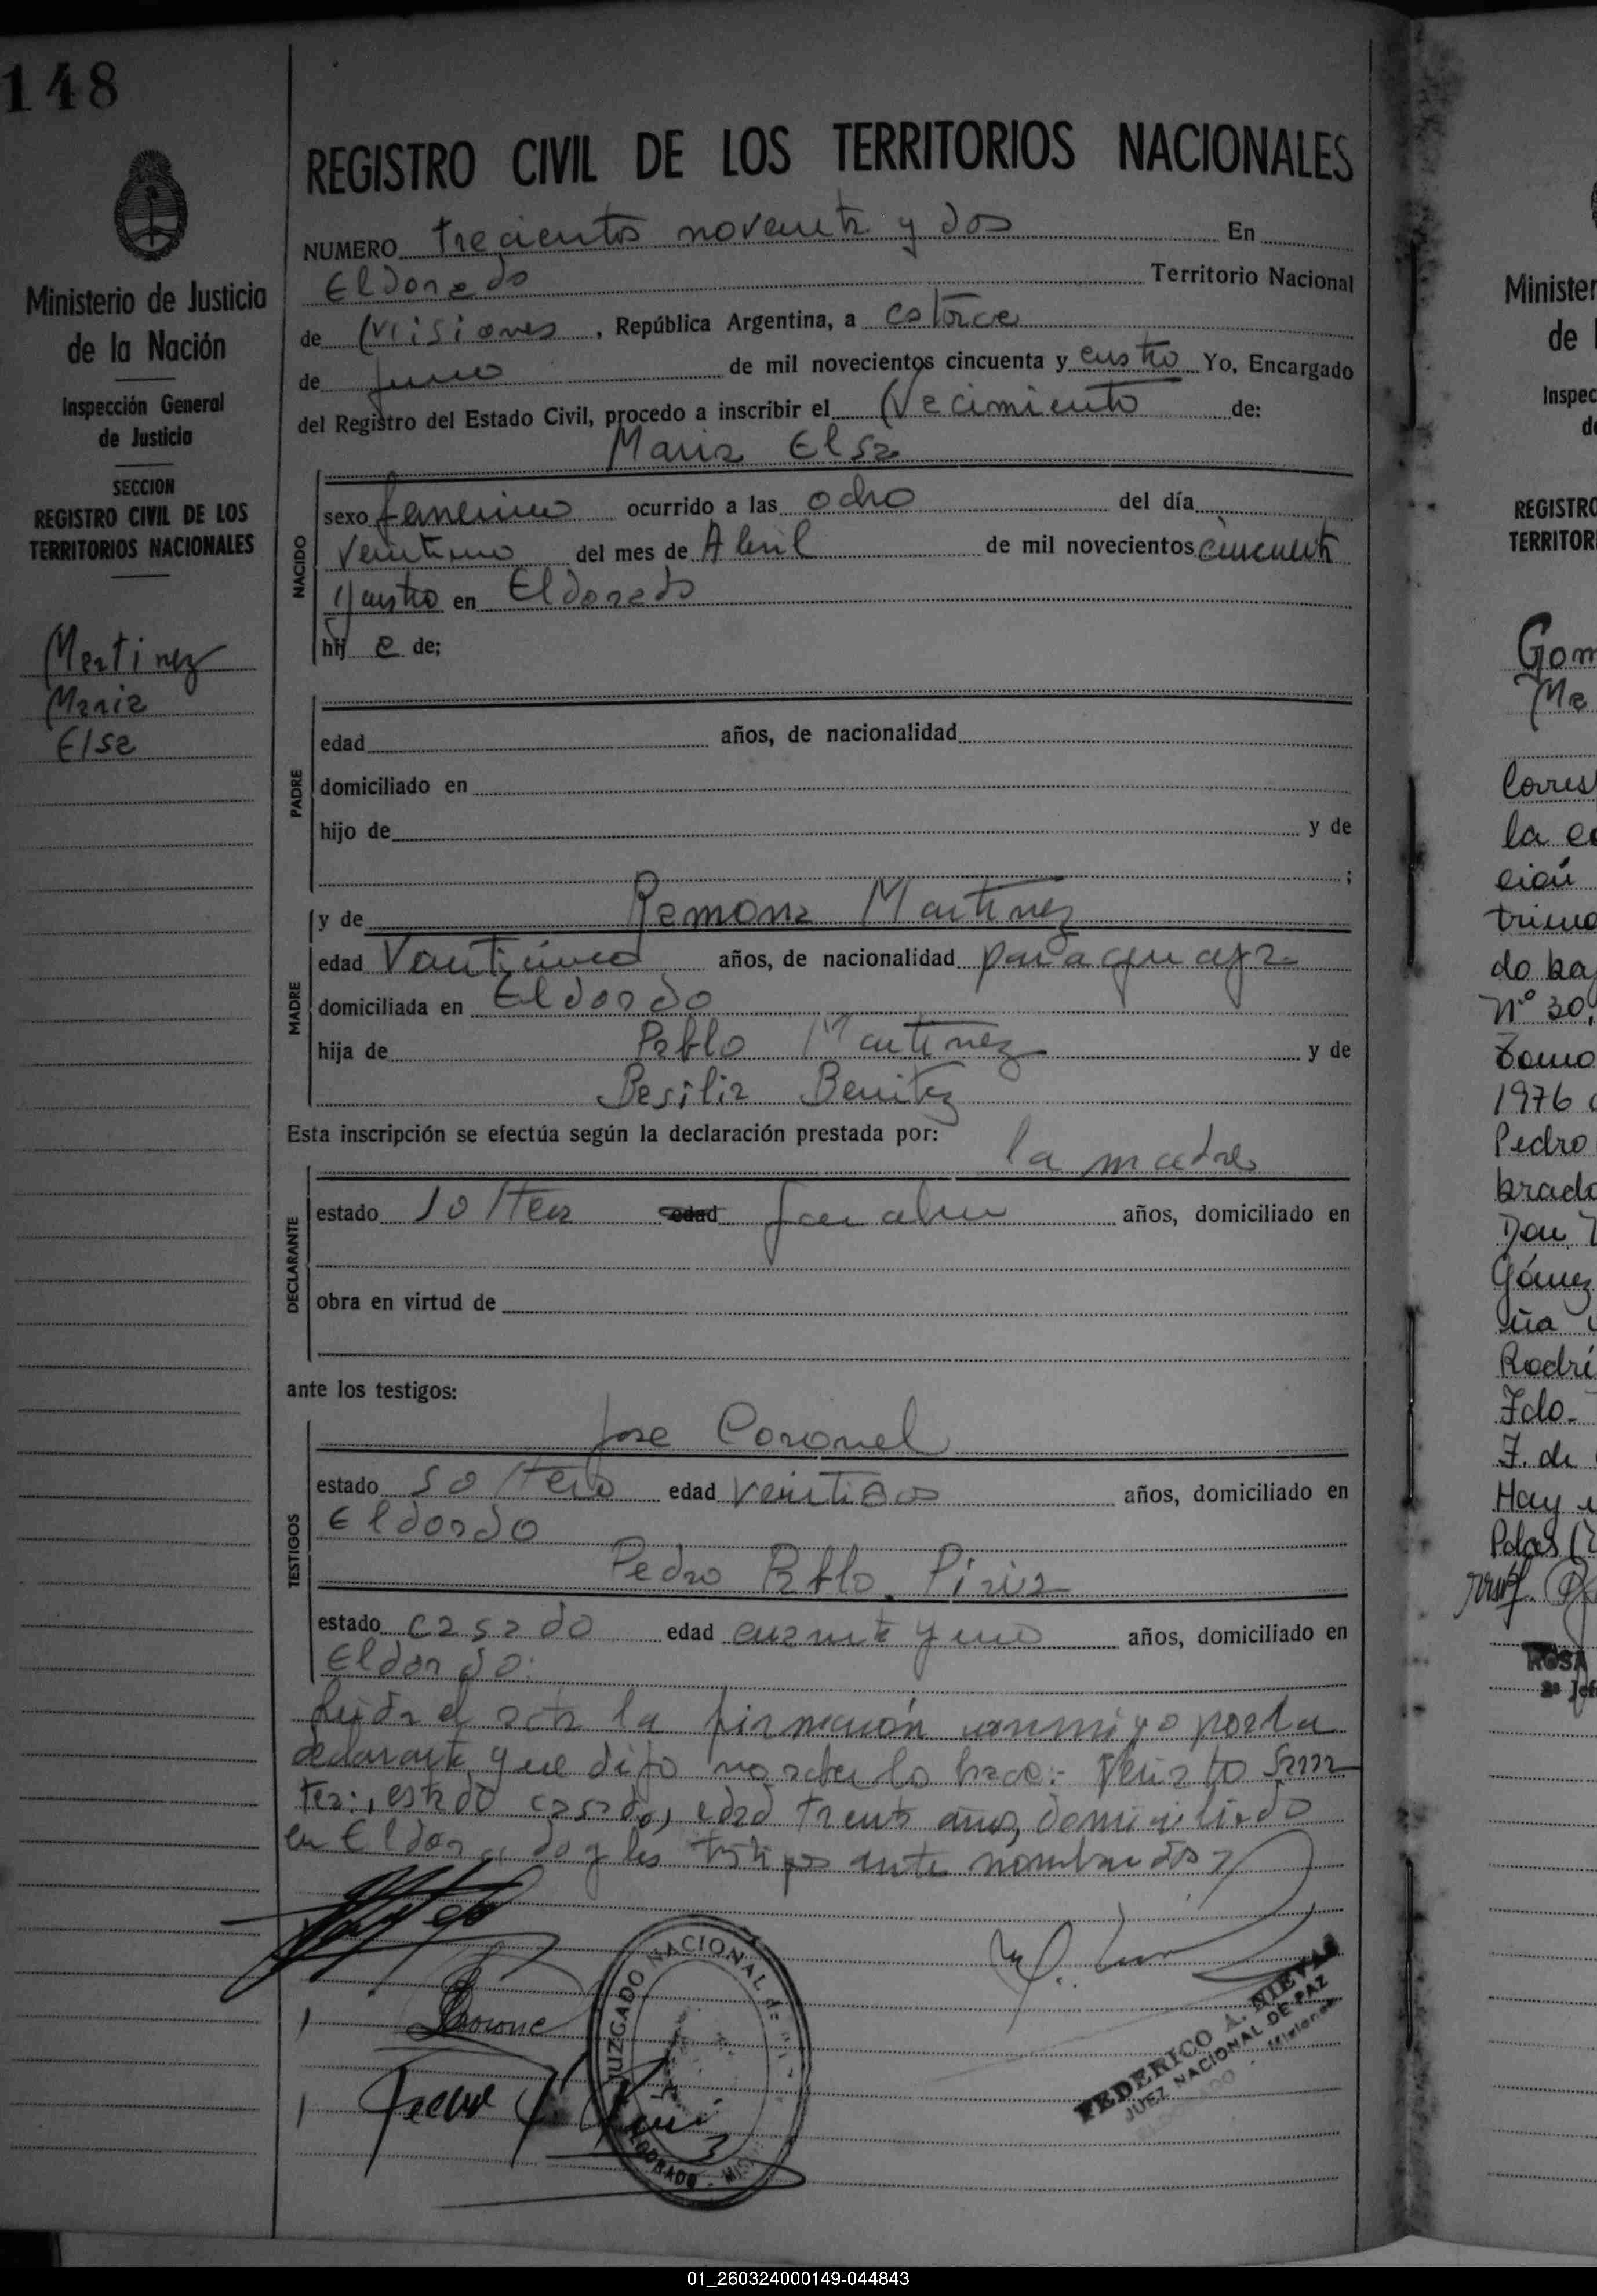 148
REGISTRO CIVIL DE LOS TERRITORIOS NACIONALES
Ministerio de Justicia
de la Nación
Inspección General
de Justicia
SECCION
REGISTRO CIVIL DE LOS
TERRITORIOS NACIONALES
Martinez
Maria
Elsa
NUMERO trecientos noventa y dos En
Eldorado Territorio Nacional
de Misiones, República Argentina, a catorce
de junio de mil novecientos cincuenta y cuatro Yo, Encargado
del Registro del Estado Civil, procedo a inscribir el Nacimiento de:
Maria Elsa
NACIDO
sexo femenino ocurrido a las ocho del día
veintiuno del mes de Abril de mil novecientos cincuenta
y cuatro en Eldorado
hij a de;
PADRE
edad años, de nacionalidad
domiciliado en
hijo de y de
;
MADRE
y de Ramona Martinez
edad años, de nacionalidad paraguaya
domiciliada en Eldorado
hija de Pablo Martinez y de
Basilia Benitez
Esta inscripción se efectúa según la declaración prestada por:
la madre
DECLARANTE
estado soltera edad años, domiciliado en
obra en virtud de
ante los testigos:
TESTIGOS
Jose Coronel
estado soltero edad veintidos años, domiciliado en
Eldorado
Pedro Pablo Piriz
estado casado edad cuarenta y uno años, domiciliado en
Eldorado.
Leida el acta la firmaron conmigo por la
declarante que dijo no saber lo hace:
estado casado, edad treinta años, domiciliado
en Eldorado y los testigos ante nombrados
JUZGADO NACIONAL DE
ELDORADO - MIS
FEDERICO A. NIEVAS
JUEZ NACIONAL DE PAZ
ELDORADO - Misiones
Minister
de l
Inspec
de
REGISTRO
TERRITOR
Gom
Ma
Corres
la
ción
do ba
Nº 30,
Tomo
1976
Pedro
brado
Don
Gómez
ña
Rodrí
Fdo.
F. de
Hay
ROSA
2ª Jef
01_260324000149-044843